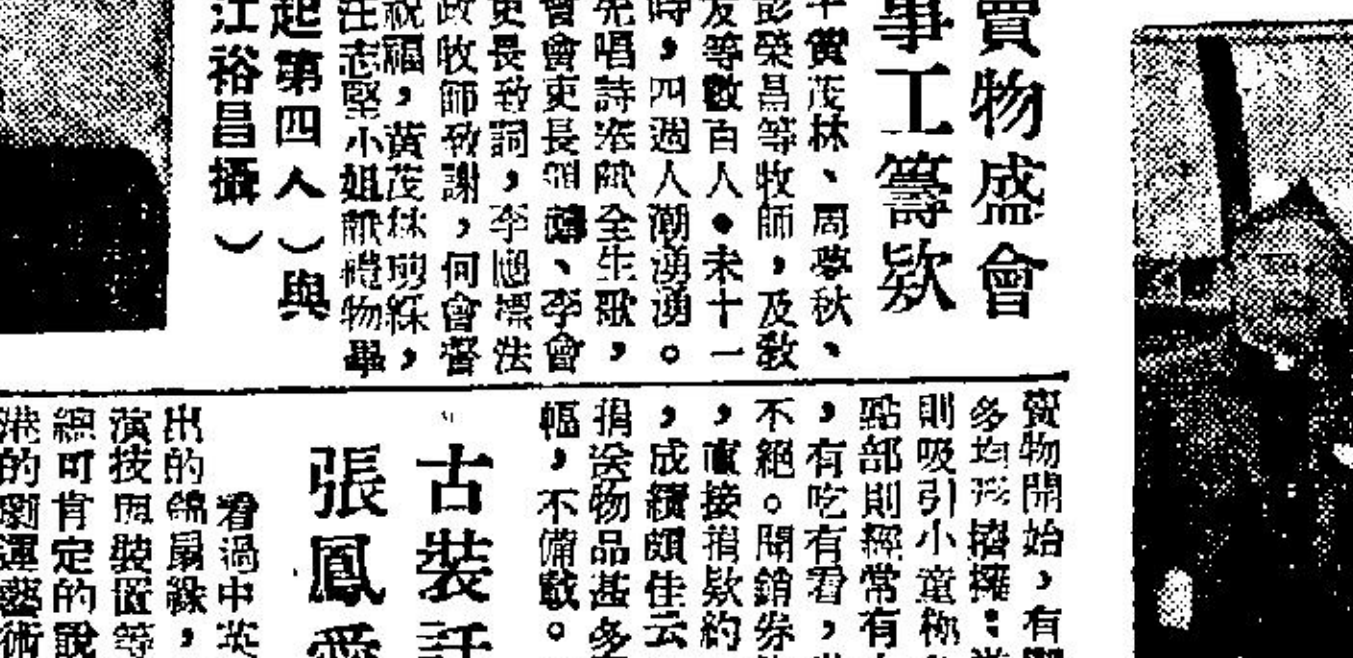 賣物盛會
事工籌欵
黃茂林、周夢秋、
彭榮昌等牧師，及敎
友等數百人●未十一
時，四週人潮湧湧。
先唱詩 全生歌，
會會吏長 禱、李會
吏長致詞，李應標法
政牧師致謝，何會督
祝福，黃茂林剪綵，
汪志堅小姐獻禮物畢
起第四人）與
江裕昌攝）
賣物開始，有
多均形擠擁：
則吸引小童
點部則經常有
，有吃有看，
不絕。開銷券
，直接捐欵約
，成績頗佳云
捐送物品甚多
幅，不備載。
古裝話
張鳳愛
看過中英
出的錦扇緣，
演技與裝置等
總可肯定的說
港的劇運藝術